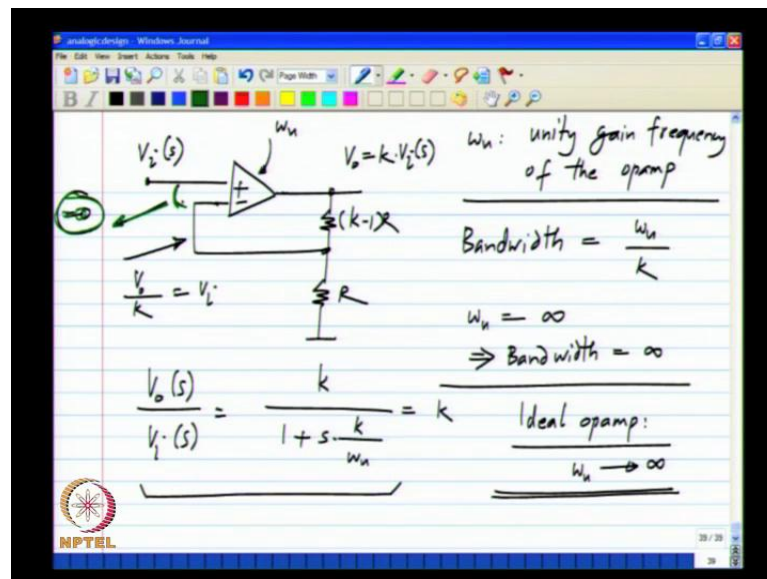 analogicdesign - Windows Journal
File Edit View Insert Actions Tools Help
Page Width
B I
V_i(s)
ω_u
V_o = k·V_i(s)
(k-1)R
R
V_o/k = V_i
V_o(s)/V_i(s) = k/(1 + s·k/ω_u) = k
ω_u : unity gain frequency
of the opamp
Bandwidth = ω_u/k
ω_u = ∞
⇒ Bandwidth = ∞
Ideal opamp:
ω_u → ∞
NPTEL
39/39
39